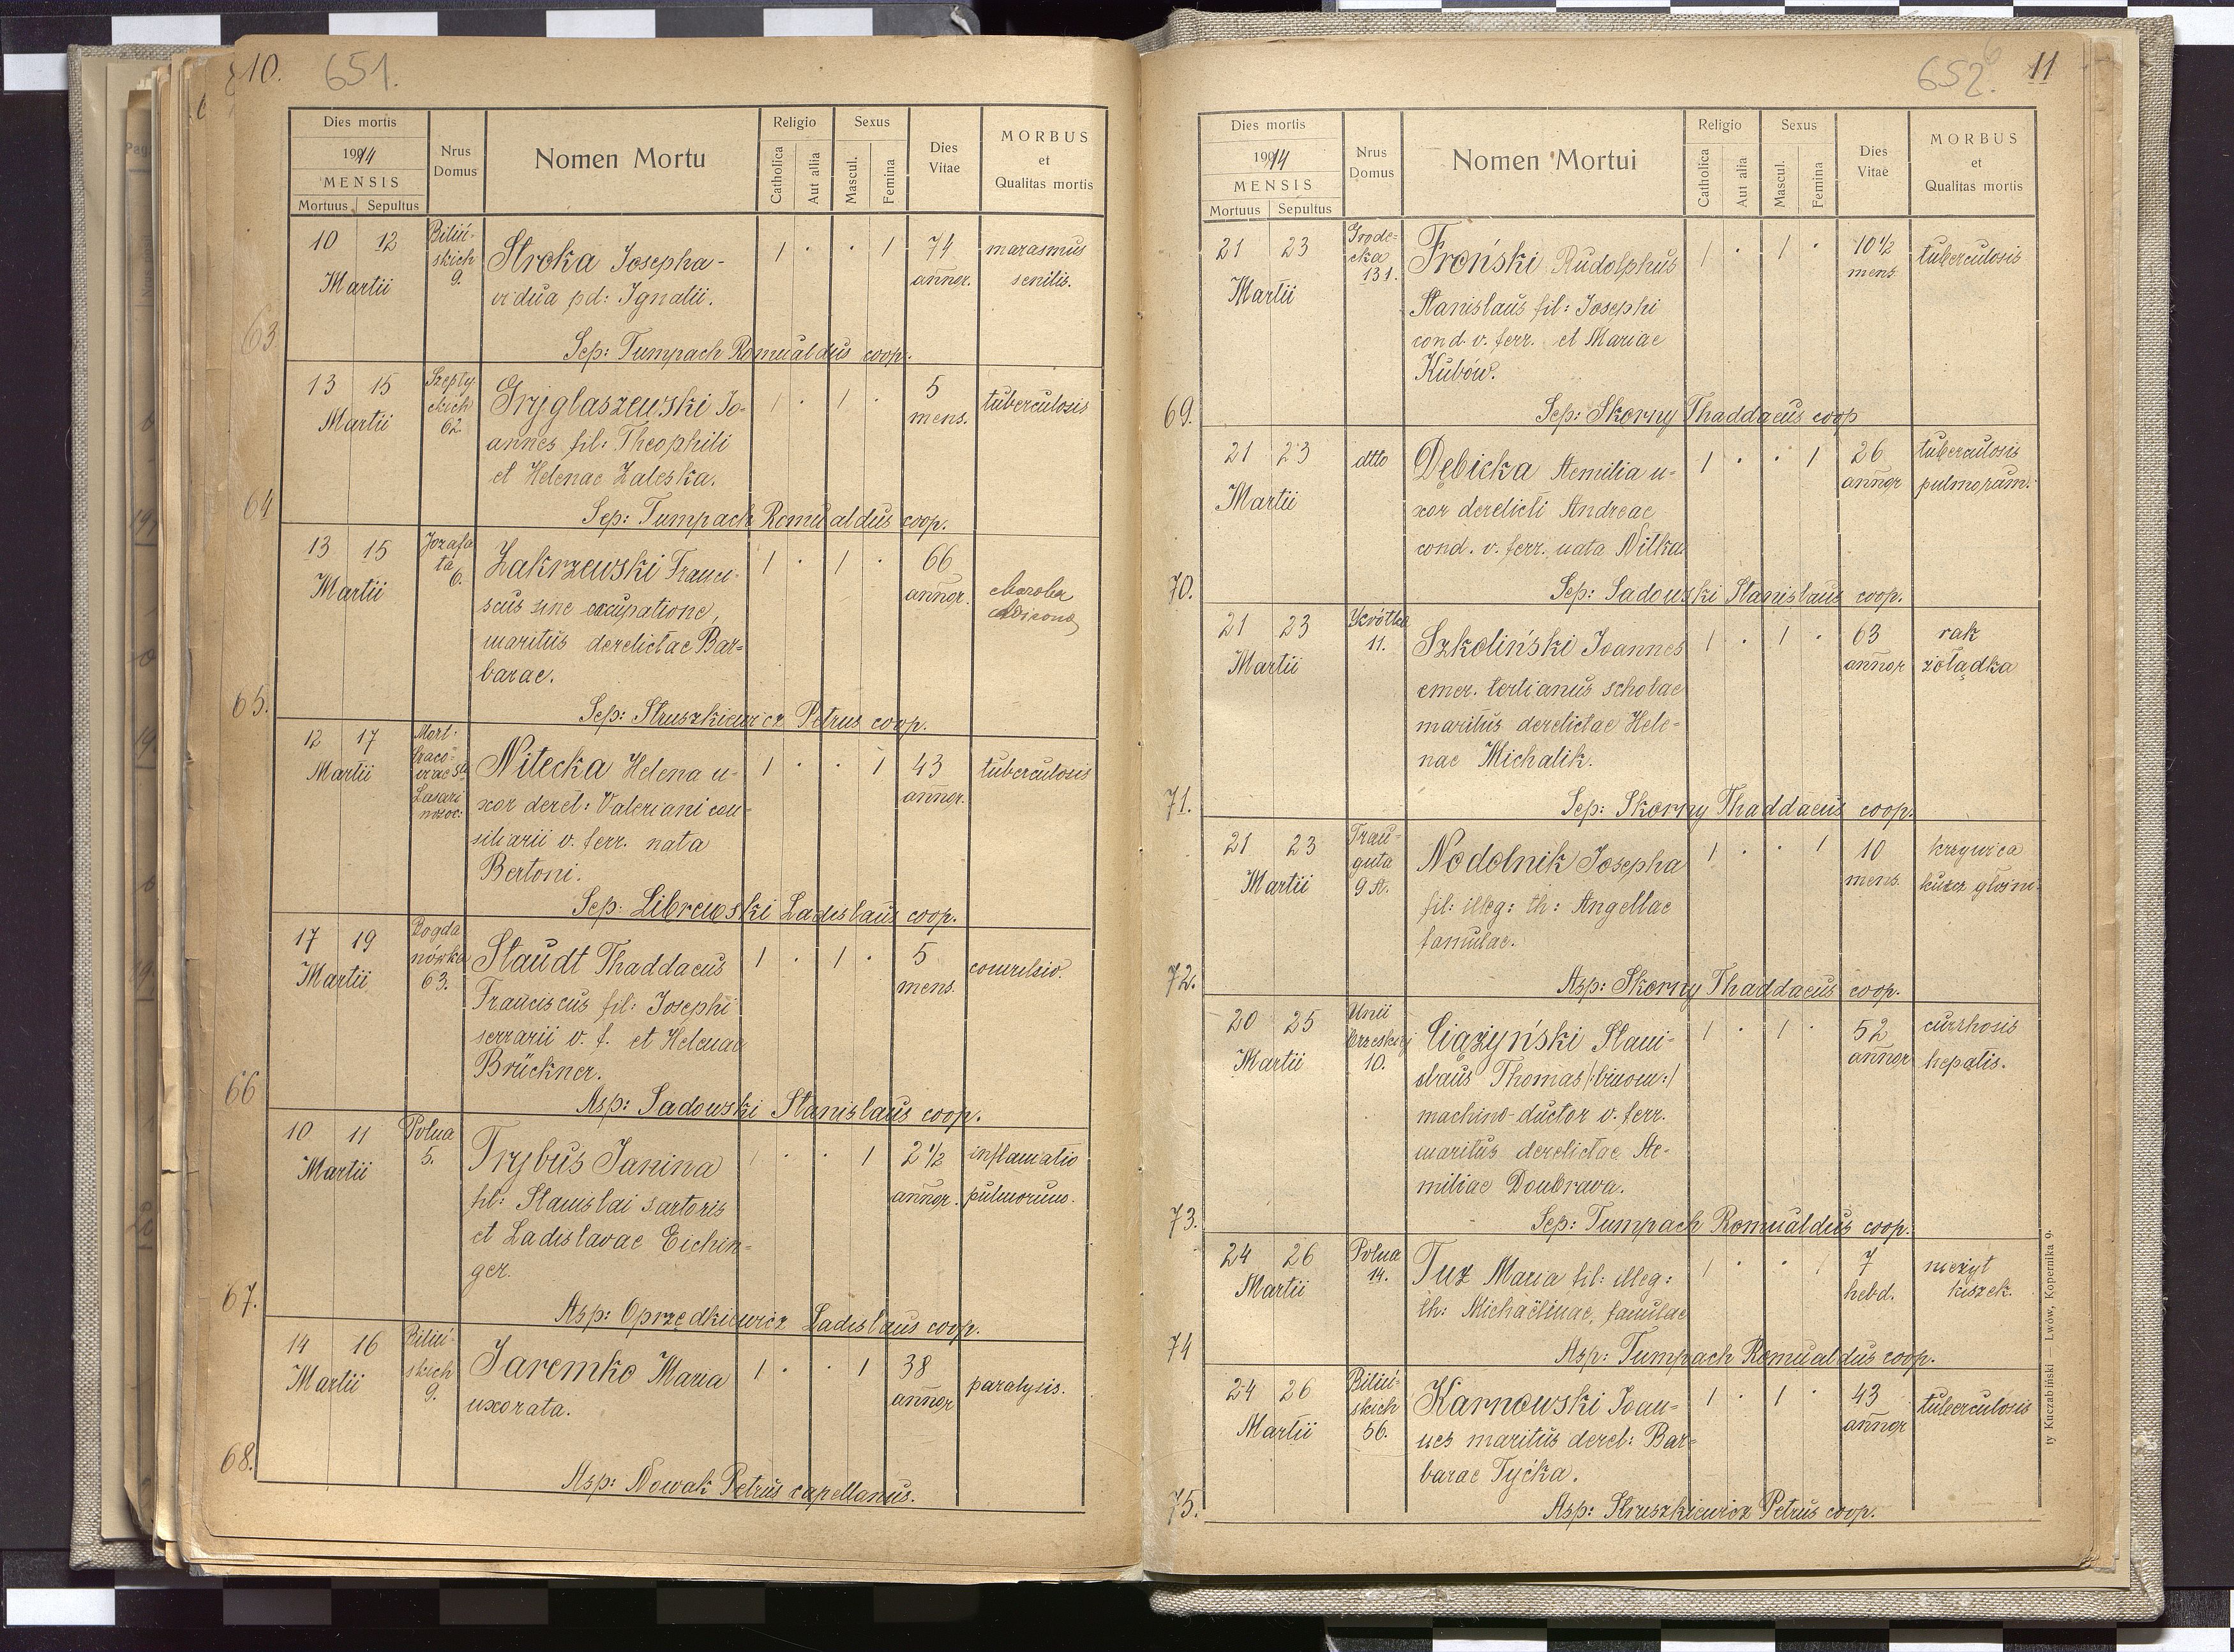 10. 651.
Dies mortis
1914
MENSIS
Mortuus Sepultus
Nrus Domus
Nomen Mortu
Religio
Catholica Aut allia
Sexus
Mascul. Femina
Dies Vitae
MORBUS
et
Qualitas mortis
63
10 12
Martii
Biliń-
skich
9.
Sroka Josepha -
vidua pd: Ignatii.
1 · · 1
74
annor.
marasmus
senilis.
Sep: Tumpach Romualdus coop.
64
13 15
Martii
Szepty
ckich
62
Gryglaszewski Jo-
annes fil: Theophili
et Helenae Zaleska.
1 · 1 ·
5
mens.
tuberculosis
Sep: Tumpach Romualdus coop.
65.
13 15
Martii
Jozafa
ta
6.
Zakrzewski Franci-
scus sine occupatione,
maritus derelictae Bar-
barae.
1 · 1 ·
66
annor.
choroba
Sep: Struszkiewicz Petrus coop.
12 17
Martii
Lazari
Nitecka Helena u-
xor derel: Valeriani con-
siliarii v. ferr. nata
Bertoni.
1 · · 1
43
annor.
tuberculosis
Sep: Librewski Ladislaus coop.
66
17 19
Martii
Bogda
nówka
63.
Staudt Thaddaeus
Franciscus fil: Josephi
serrarii v. f. et Helenae
Brückner.
1 · 1 ·
5
mens.
convulsio.
Asp: Sadowski Stanislaus coop.
67.
10 11
Martii
Polna
5.
Trybus Janina
fil: Stanislai sartoris
et Ladislavae Eichin-
ger.
1 · · 1
2 1/2
annor.
inflamatio
pulmorum.
Asp: Oprzędkiewicz Ladislaus coop.
68.
14 16
Martii
Biliń-
skich
9.
Jaremko Maria
uxorata.
1 · · 1
38
annor
paralysis.
Asp: Nowak Petrus capellanus.
652. 11
Dies mortis
1914
MENSIS
Mortuus Sepultus
Nrus Domus
Nomen Mortui
Religio
Catholica Aut alia
Sexus
Mascul. Femina
Dies Vitae
MORBUS
et
Qualitas mortis
69.
21 23
Martii
Grode-
cka
131.
Froński Rudolphus
Stanislaus fil: Josephi
cond. v. ferr. et Mariae
Kubów.
1 · 1 ·
10 1/2
mens
tuberculosis
Sep: Skorny Thaddaeus coop
70.
21 23
Martii
dtto
Dębicka Aemilia u-
xor derelicti Andreae
cond. v. ferr. nata Nitka.
1 · · 1
26
annor
tuberculosis
pulmorum.
Sep: Sadowski Stanislaus coop.
71.
21 23
Martii
11.
Szkoliński Joannes
emer. tertianus scholae
maritus derelictae Hele-
nae Michalik.
1 · 1 ·
63
annor
rak
żołądka
Sep: Skorny Thaddaeus coop.
72.
21 23
Martii
Trau-
guta
9 st.
Nodolnik Josepha
fil: illeg: th: Angellae
famulae.
1 · · 1
10
mens.
krzywica
kurcz głośni.
Asp: Skorny Thaddaeus coop.
73.
20 25
Martii
Unii
brzeskiej
10.
Ciążyński Stani-
slaus Thomas /:binom:/
machino-ductor v. ferr.
maritus derelictae Ae-
miliae Doubrava.
1 · 1 ·
52
annor
cirrhosis
hepatis.
Sep: Tumpach Romualdus coop.
74
24 26
Martii
Polna
14.
Tuz Maria fil: illeg:
th: Michaëlinae, famulae
1 · · 1
7
hebd.
nieżyt
kiszek.
Asp: Tumpach Romualdus coop.
75.
24 26
Martii
Biliń-
skich
56.
Karnowski Joan-
nes maritus derel: Bar-
barae Tyćka.
1 · 1 ·
43
annor
tuberculosis
Asp: Struszkiewicz Petrus coop.
ty Kuczabiński — Lwów, Kopernika 9.